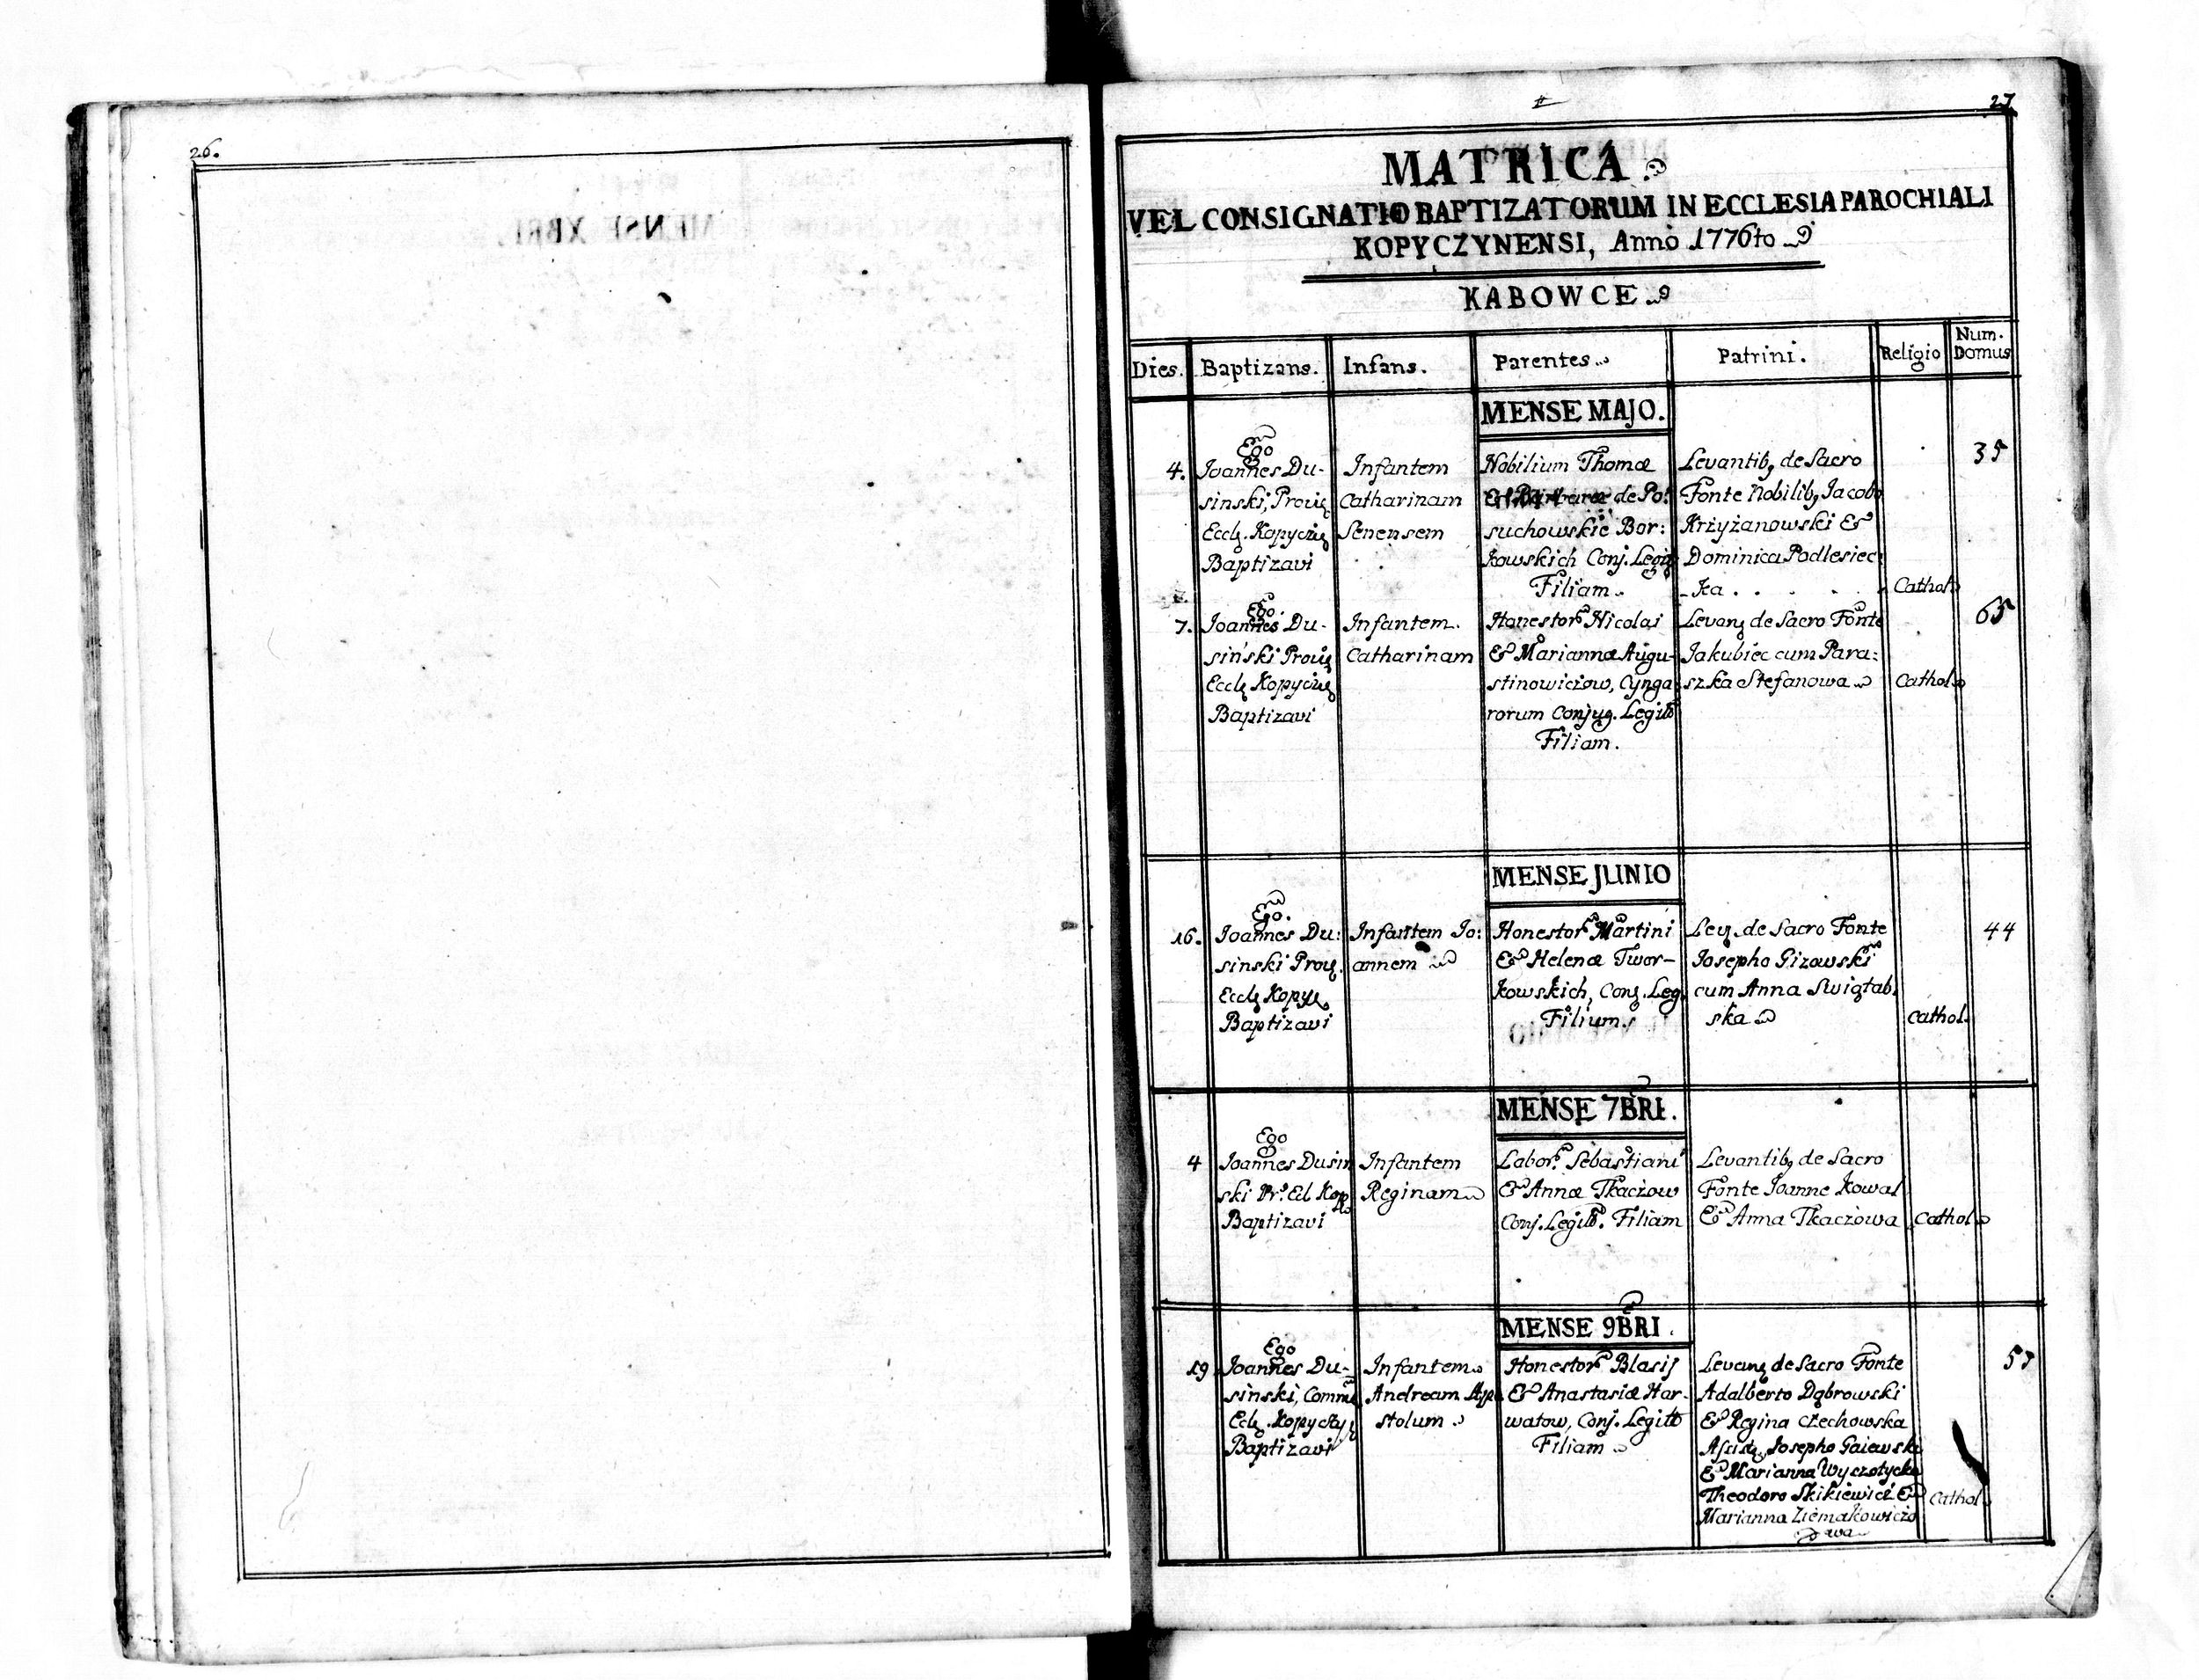 26.
27
MATRICA
VEL CONSIGNATIO BAPTIZATORUM IN ECCLESIA PAROCHIALI
KOPYCZYNENSI, Anno 1776to
KABOWCE
Dies. Baptizans. Infans. Parentes. Patrini. Religio Num. Domus
MENSE MAJO.
4.
Ego
Joannes Du-
sinski, Prov
Eccl. Kopyczyn
Baptizavi
Infantem
Catharinam
Senensem
Nobilium Thomæ
& Barbaræ de Po:
suchowskie Bor:
kowskich Conj. Legit
Filiam.
Levantib, de Sacro
Fonte Nobilib, Jacobo
Krzyżanowski &
Dominica Podlesiec:
-ka
Cathol
35
7.
Ego
Joannes Du-
sinski Prov
Eccl Kopyczy
Baptizavi
Infantem.
Catharinam
Honestor Nicolai
& Mariannæ Augu-
stinowiczow, Cynga
rorum Conjug. Legit
Filiam.
Levan de Sacro Fonte
Jakubiec cum Para:
szka Stefanowa
Cathol
65
MENSE JUNIO
16.
Ego.
Joannes Du:
sinski Prov.
Eccl Kopy
Baptizavi
Infantem Jo:
annem
Honestor Martini
& Helenæ Twor-
kowskich, Conj. Leg
Filium
Lev. de Sacro Fonte
Josepho Gizowski
cum Anna
ska
Cathol.
44
MENSE 7BRI.
4
Ego
Joannes Dusin
ski Pr. Ecl Kop
Baptizavi
Infantem
Reginam
Labor. Sebastiani
& Annæ Tkaczow
Conj. Legit. Filiam
Levantib, de Sacro
Fonte Joanne Kowal
& Anna Tkaczowa
Cathol
MENSE 9BRI.
19
Ego
Joannes Du-
sinski, Comm
Ecl. Kopyczy
Baptizavi
Infantem
Andream Apo
stolum
Honestor Blasij
& Anastasiæ Har-
watow, Conj. Legit
Filiam
Levan de Sacro Fonte
Adalberto Dąbrowski
& Regina Czechowska
Josepho Gaiewski
& Marianna Wyczotycka
Theodoro Skikiewicz &
Marianna Ziemakowiczo
wa
Cathol
57
MENSE XBRI.